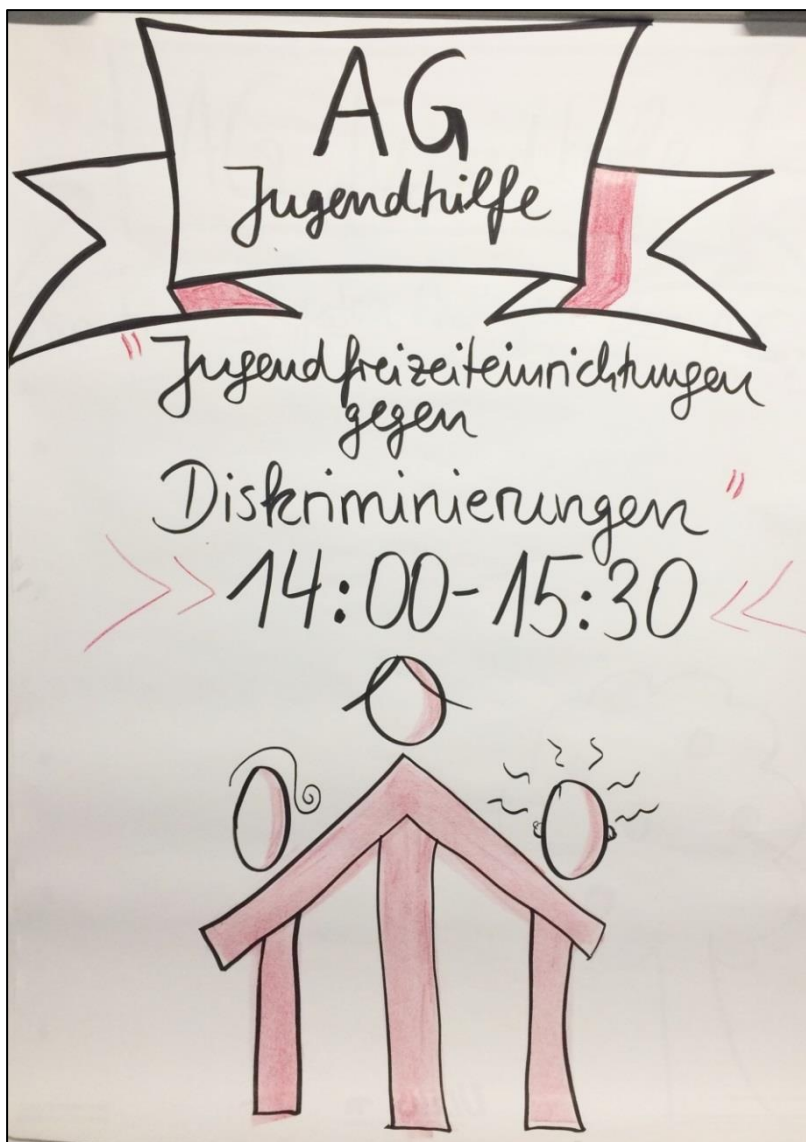 AG
Jugendhilfe
"Jugendfreizeiteinrichtungen
gegen
Diskriminierungen"
>> 14:00-15:30 <<